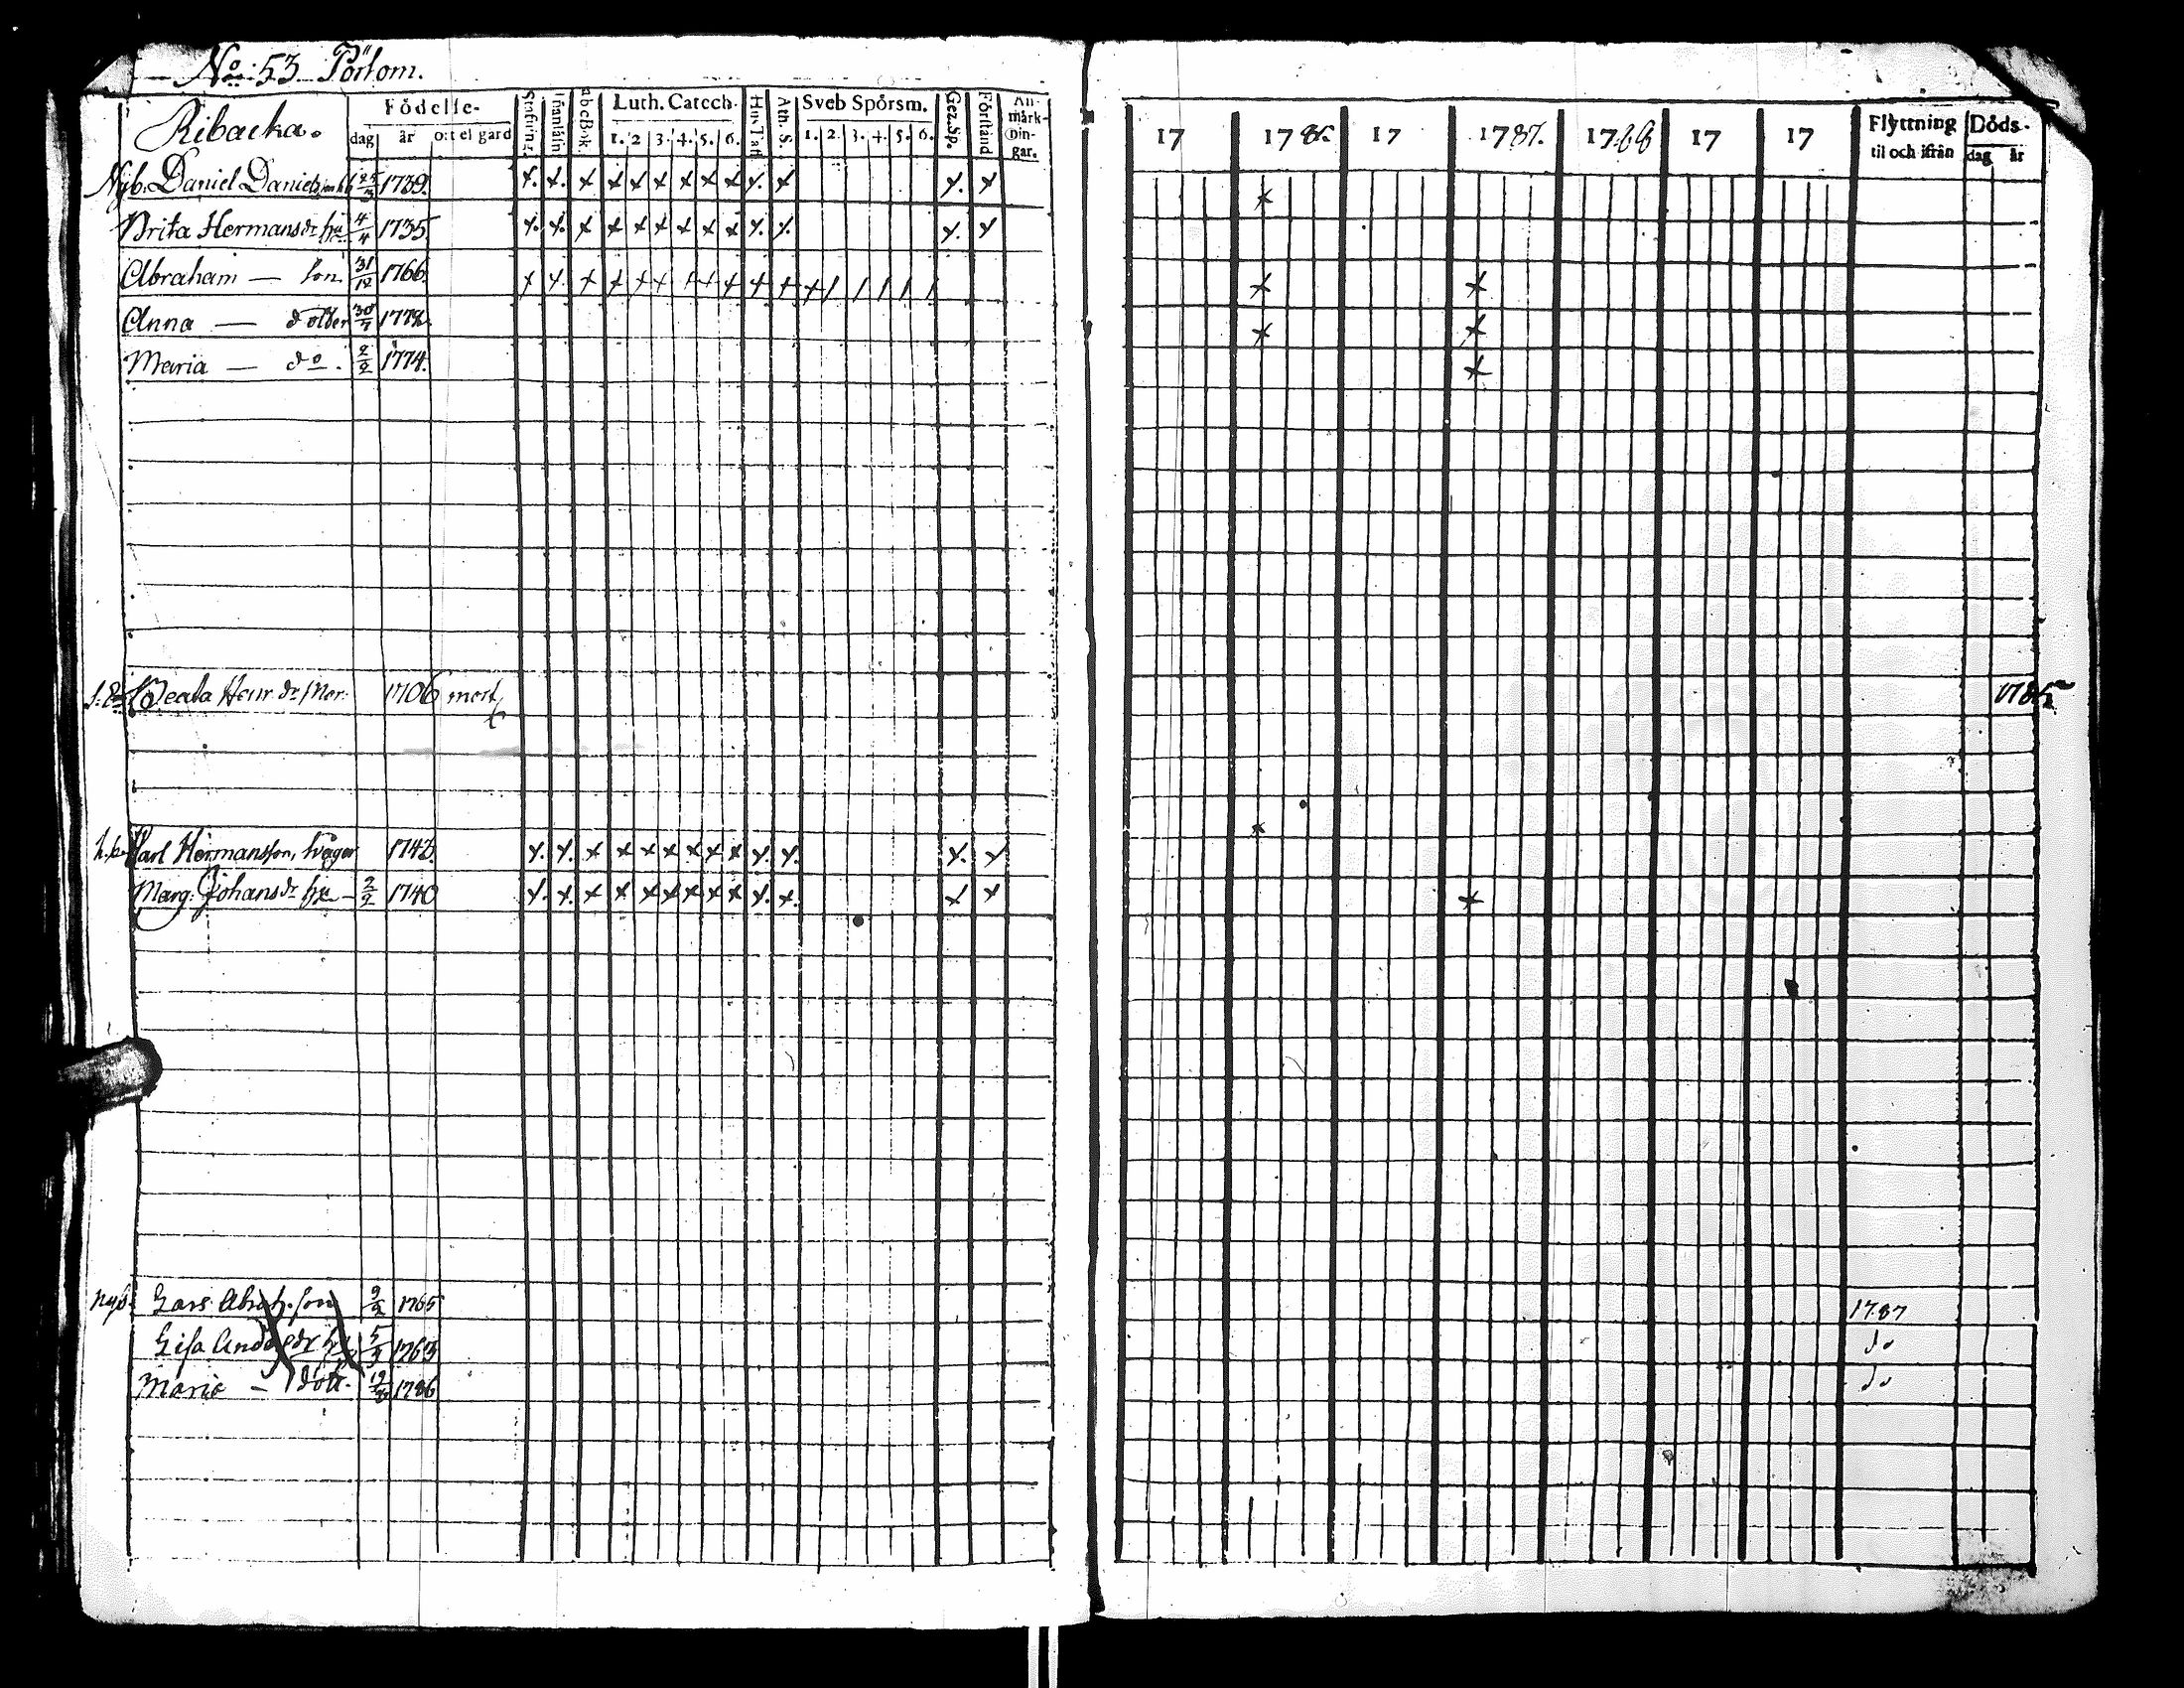 No: 53. Pörtom.
Ribacka.
Födelse-
dag år ort el gård
Stafning
Innanläsn
abcBok.
Luth. Catech.
1. 2 3. 4. 5. 6.
Hus Tafl
Ath. S.
Sveb Spörsm.
1. 2. 3. 4. 5. 6.
Gez.Sp.
Förstånd
An-
märk-
nin-
gar.
17 1785. 17 1787. 1788 17 17
Flyttning
til och ifrån
Döds-
dag år
Nyb. Daniel Daniels 25/3 1739. x. x. x x x x x x x x. x x. x x
Brita Hermansdr hu 4/4 1735 x. x. x x x x x x x x. x. x. x
Abraham — son 31/12 1766. x x. x x x x x x x x x x / / / / / x x
Anna — dotter 30/7 1772. x x
Maria — do. 2/2 1774. x
Beata Henr. dr Mor. 1706 mort 1785
Carl Hermansson, Svåger 1742. x. x. x x x x x x x x. x. x. x x
Marg. Johansdr hu — 2/2 1740 x. x. x x x x x x x x. x. x x x
Nyb. Lars Abrah. son 9/2 1765 1787
Lisa Andersdr hu 5/3 1763 do
Maria — dott. 1786 do